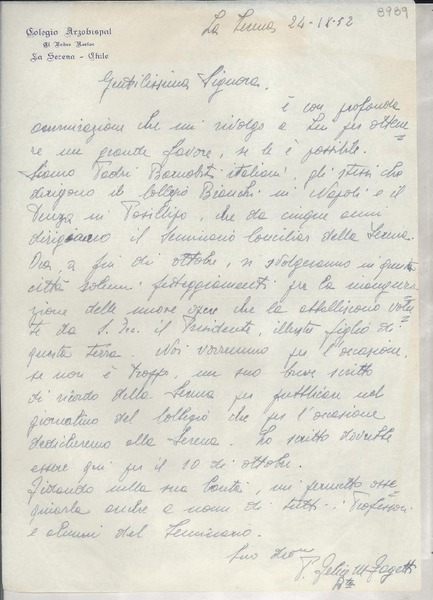 8989
Colegio Arzobispal
La Serena - Chile
La Serena 24-IX-52
Gentilissima Signora,
è con profonda
ammirazione che mi rivolgo a Lei per ottene=
re un grande favore, se le è possibile.
Siamo Padri Barnabiti italiani, gli stessi che
dirigono il Collegio Bianchi in Napoli e il
Denza in Posillipo, che da cinque anni
dirigiamo il Seminario Conciliar della Serena.
Ora, a fin di ottobre, si svolgeranno in questa
città solenni festeggiamenti per la inaugura=
zione delle nuove opere che la abbelliscono volu=
te da S. Ec. il Presidente, illustre figlio di
questa terra. Noi vorremmo per l'occasione,
se non è troppo, un suo breve scritto
di ricordo della Serena per pubblicare nel
giornalino del Collegio che per l'occasione
dedicheremo alla Serena. Lo scritto dovrebbe
essere qui per il 10 di ottobre.
Fidando nella sua bontà, mi permetto osse=
quiarla anche a nome di tutti i Professori
e alunni del Seminario.
Suo
P. Felice M. Fagetti